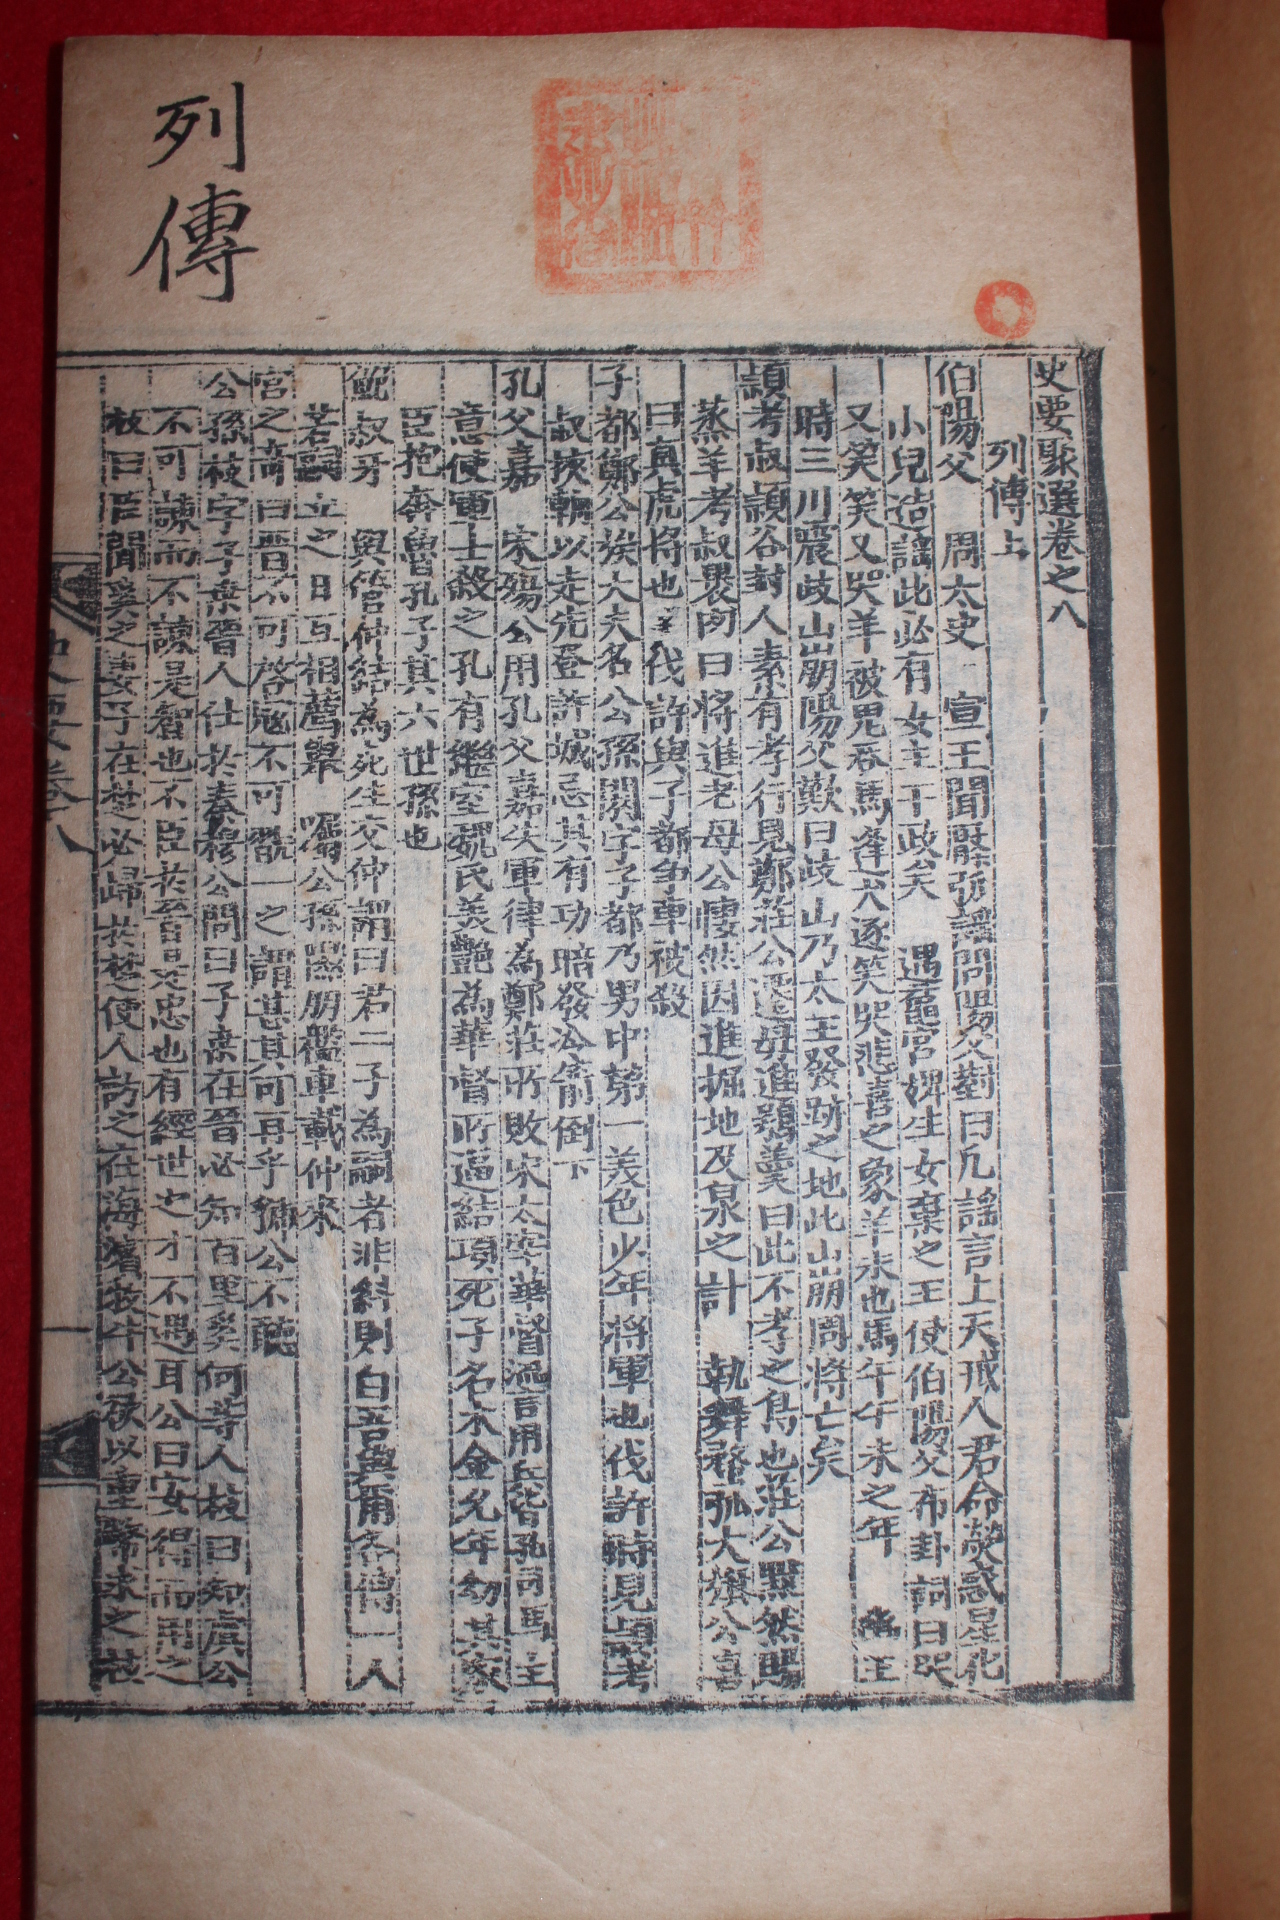 列傳
史要聚選卷之八
列傳上
伯陽父 周太史 宣王聞檿弧謠問陽父對曰凡謠言上天戒人君命熒惑星化
小兒造謠此必有女主干政矣 遇龍宮娠生女棄之王使伯陽父布卦詞曰哭
又笑笑又哭羊被鬼吞馬逢犬逐笑哭悲喜之象羊未也馬午午未之年 幽王
時三川震歧山崩陽父歎曰歧山乃太王發跡之地此山崩周將亡矣
頴考叔頴谷封人素有孝行見鄭莊公遷母進鴞羹曰此不孝之鳥也莊公默然賜
蒸羊考叔裹肉曰將進老母公悽然因進掘地及泉之計 執舞蝥弧大旗公喜
曰眞虎將也 伐許與子都爭車被殺
子都鄭公族大夫名公孫閼字子都乃男中第一美色少年將軍也伐許時見頴考
叔挾輈以走先登許城忌其有功暗發冷箭倒下
孔父嘉 宋殤公用孔父嘉失軍律為鄭莊所敗宋太宰華督 言用兵皆孔司馬主
意使軍士殺之孔有繼室魏氏美艶為華督所逼結項死子名木金父年幼其家
臣抱奔魯孔子其六世孫也
鮑叔牙 與管仲結為死生交仲謂曰君二子為嗣者非糾則白吾與爾各傅一人
若嗣立之日互相薦擧 囑公孫隰朋檻車載仲來
宮之奇曰晋不可啓寇不可翫一之謂甚其可再乎虢公不聽
公孫枝字子桑晉人仕於秦穆公問曰子桑在晉必知百里奚何等人枝曰知虞公
不可諫而不諫是智也不臣於晋是忠也有經世之才不遇耳公曰安得而用之
枝曰臣聞奚之妻子在楚必歸於楚使人訪之在海濱牧牛公欲以重幣求之枝
史要卷八
一